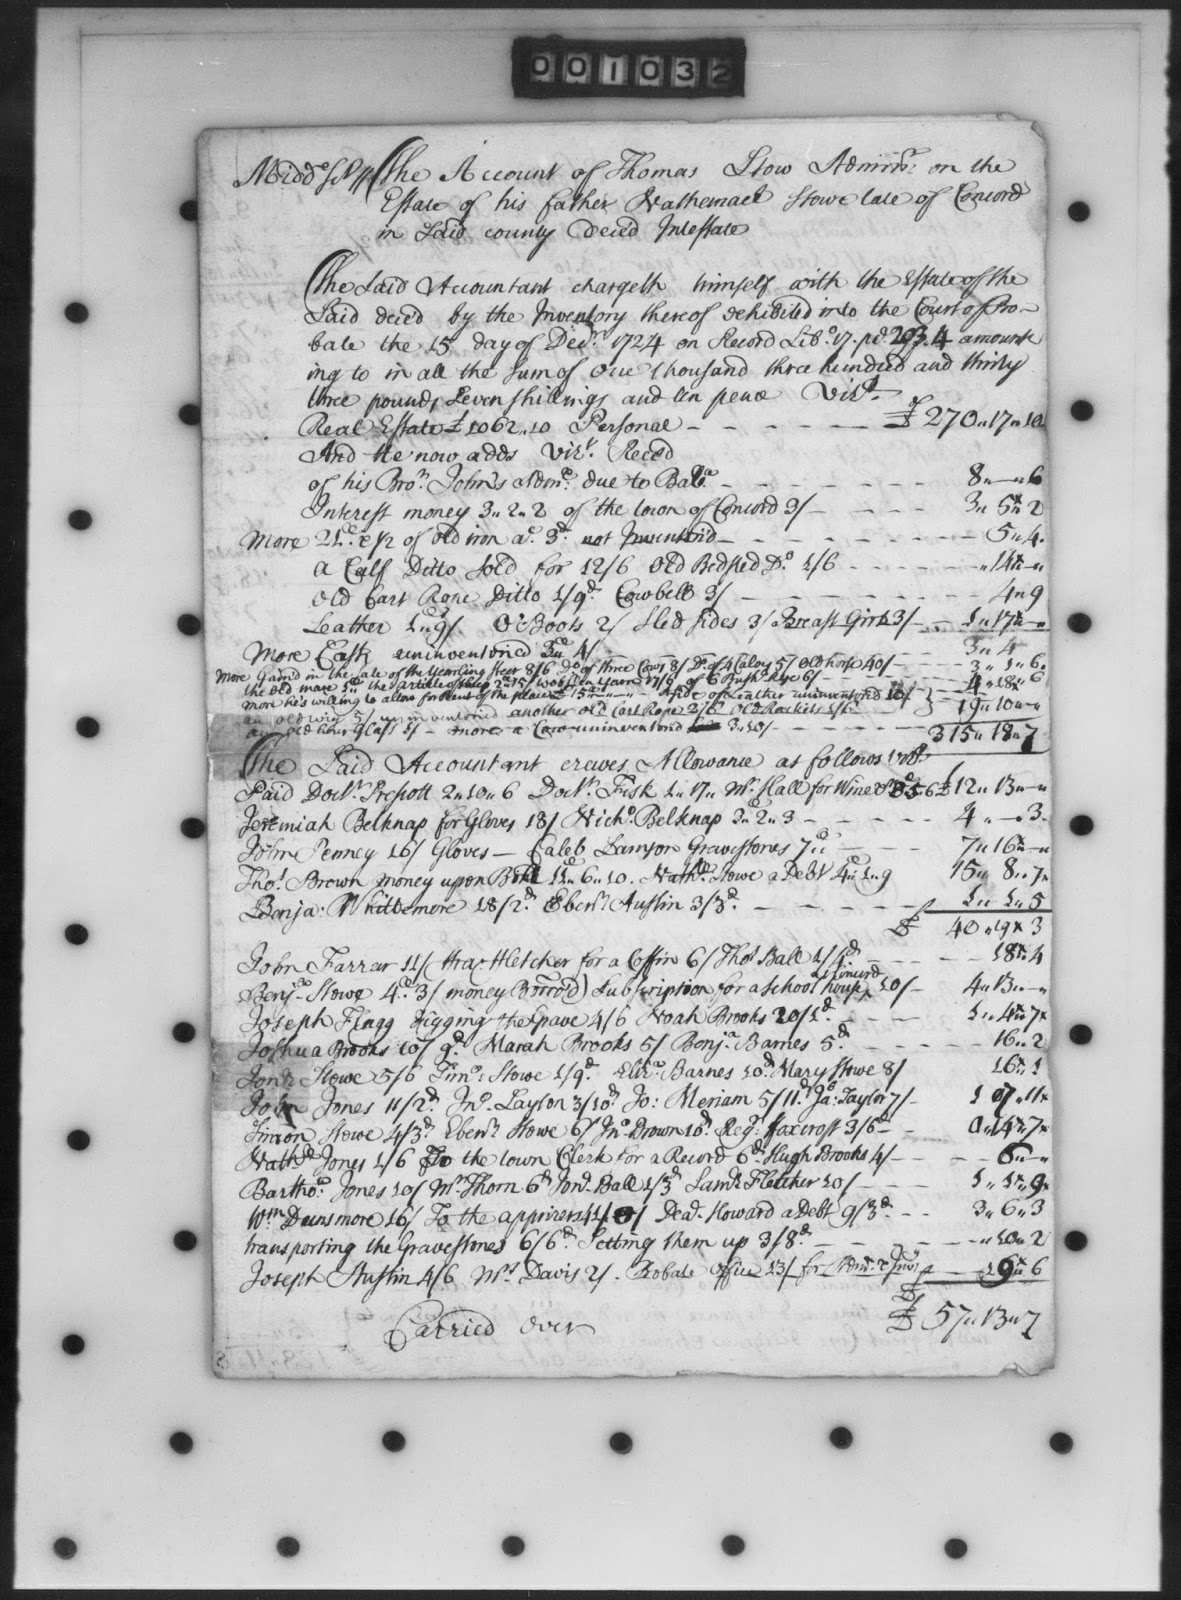 001032
Midd: ss The Account of Thomas Stow Adminr: on the
Estate of his father Nathanael Stowe late of Concord
in Said county Decēd Intestate
The Said Accountant chargeth himself with the Estate of the
Said decēd by the Inventory thereof exhibited into the Court of Pro-
bate the 15 day of Decr 1724 on Record Lib: 17. pa: 293.4 amount
ing to in all the Sum of One thousand three hundred and thirty
three pounds, Seven shillings and ten pence Vizt.
Real Estate £1062..10 Personal - - - - £270..17..10
And He now adds Vizt. Recēd
of his Bror. John's Admr. due to Balce - - - - 8..—..6
Interest money 3..2..2 of the town of Concord 3/ - - - 3..5..2
More 21 lb. & 1/2 of old iron at 3d. not Inventorid - - - - 5..4
a Calf Ditto Sold for 12/6 Old Bedsted Do. 1/6 - - - - ..14..—
Old Cart Rope Ditto 1/9d. Cowbell 3/ - - - - 4..9
Leather 1..9/ O: Boots 2/ Sled sides 3/ Breast Girth 3/ - - 1..17..—
More Cash uninventoried 3.. 4/ - - - - 3..4
More Gain'd in the sale of the Yearling Steer 8/6 Do of three Cows 8/ Do. of 4 Calves 5/ Old horse 40/ - - 3..1..6
the Old mare the article of sheep woollen Yarn 17/6 of 6 Bush: Rye 6/ - - 4..18..6
More he's willing to allow for Rent of the place £15..—..— a side of Leather uninventoried 10/ 19..10..—
an old wig 5/ uninventoried another Old Cart Rope 2/6 Old Rackets 1/6
an old hour Glass 1/ - more a Cow uninventoried 3..10/ - - 315..18..7
The Said Accountant craves Allowance as follows vizt.
Paid Doctr. Prescott 2..10..6 Doctr. Fisk 1..17.. Mr. Hall for Wine £12..13..—
Jeremiah Belknap for Gloves 18/ Nicho. Belknap 3..2..3 - - - - 4..—..3
John Penney 16/ Gloves — Caleb Lamson Gravestones 7.. - - 7..16..—
Thos. Brown money upon Bond 11..6..10. Nathl. Stowe a Debt 4..1..9 15..8..7
Benja: Whittemore 18/2d. Ebenr. Austin 3/3d. - - - - 1..1..5
£ 40..19..3
John Farrar 11/ Hez: Fletcher for a Coffin 6/ Thos Ball 1/4d. - - - 18..4
Benja. Stowe 4.. 3/ money Borrod) Subscription for a School house in Concord 10/ - 4..13..—
Joseph Flagg Digging the Grave 4/6 Noah Brooks 20/1d. - - - 1..4..7
Joshua Brooks 10/9d. Marah Brooks 5/ Benja. Barnes 5d. - - - - 16..2
Jona. Stowe 5/6 Timo: Stowe 1/9d. Eliza. Barnes 10d. Mary Stowe 8/ 16..1
John Jones 11/2d. Jno. Taylor 3/10d. Jo: Meriam 5/11d. Ja: Taylor 7/ - 1..7..11
Simon Stowe 4/3d. Ebenr. Stowe 6/ Jno. Brown 10d. Regr. Foxcroft 3/6d - 0..14..7
Nathl. Jones 1/6 To the town Clerk for a Record 6d. Hugh Brooks 4/ - - - 6..—
Bartho. Jones 10/ Mr. Thorn 6d. Jona. Ball 1/3d Saml. Fletcher 10/ - - - 1..1..9
Wm. Dunsmore 16/ To the apprizers 41/ Dea: Howard a Debt 9/3d. - - 3..6..3
transporting the Gravestones 6/6d. Setting them up 3/8d. - - - - ..10..2
Joseph Austin 4/6 Mrs. Davis 2/. Probate Office 13/ for Admn. & Invy - - 19..6
Carried Over £57..13..7